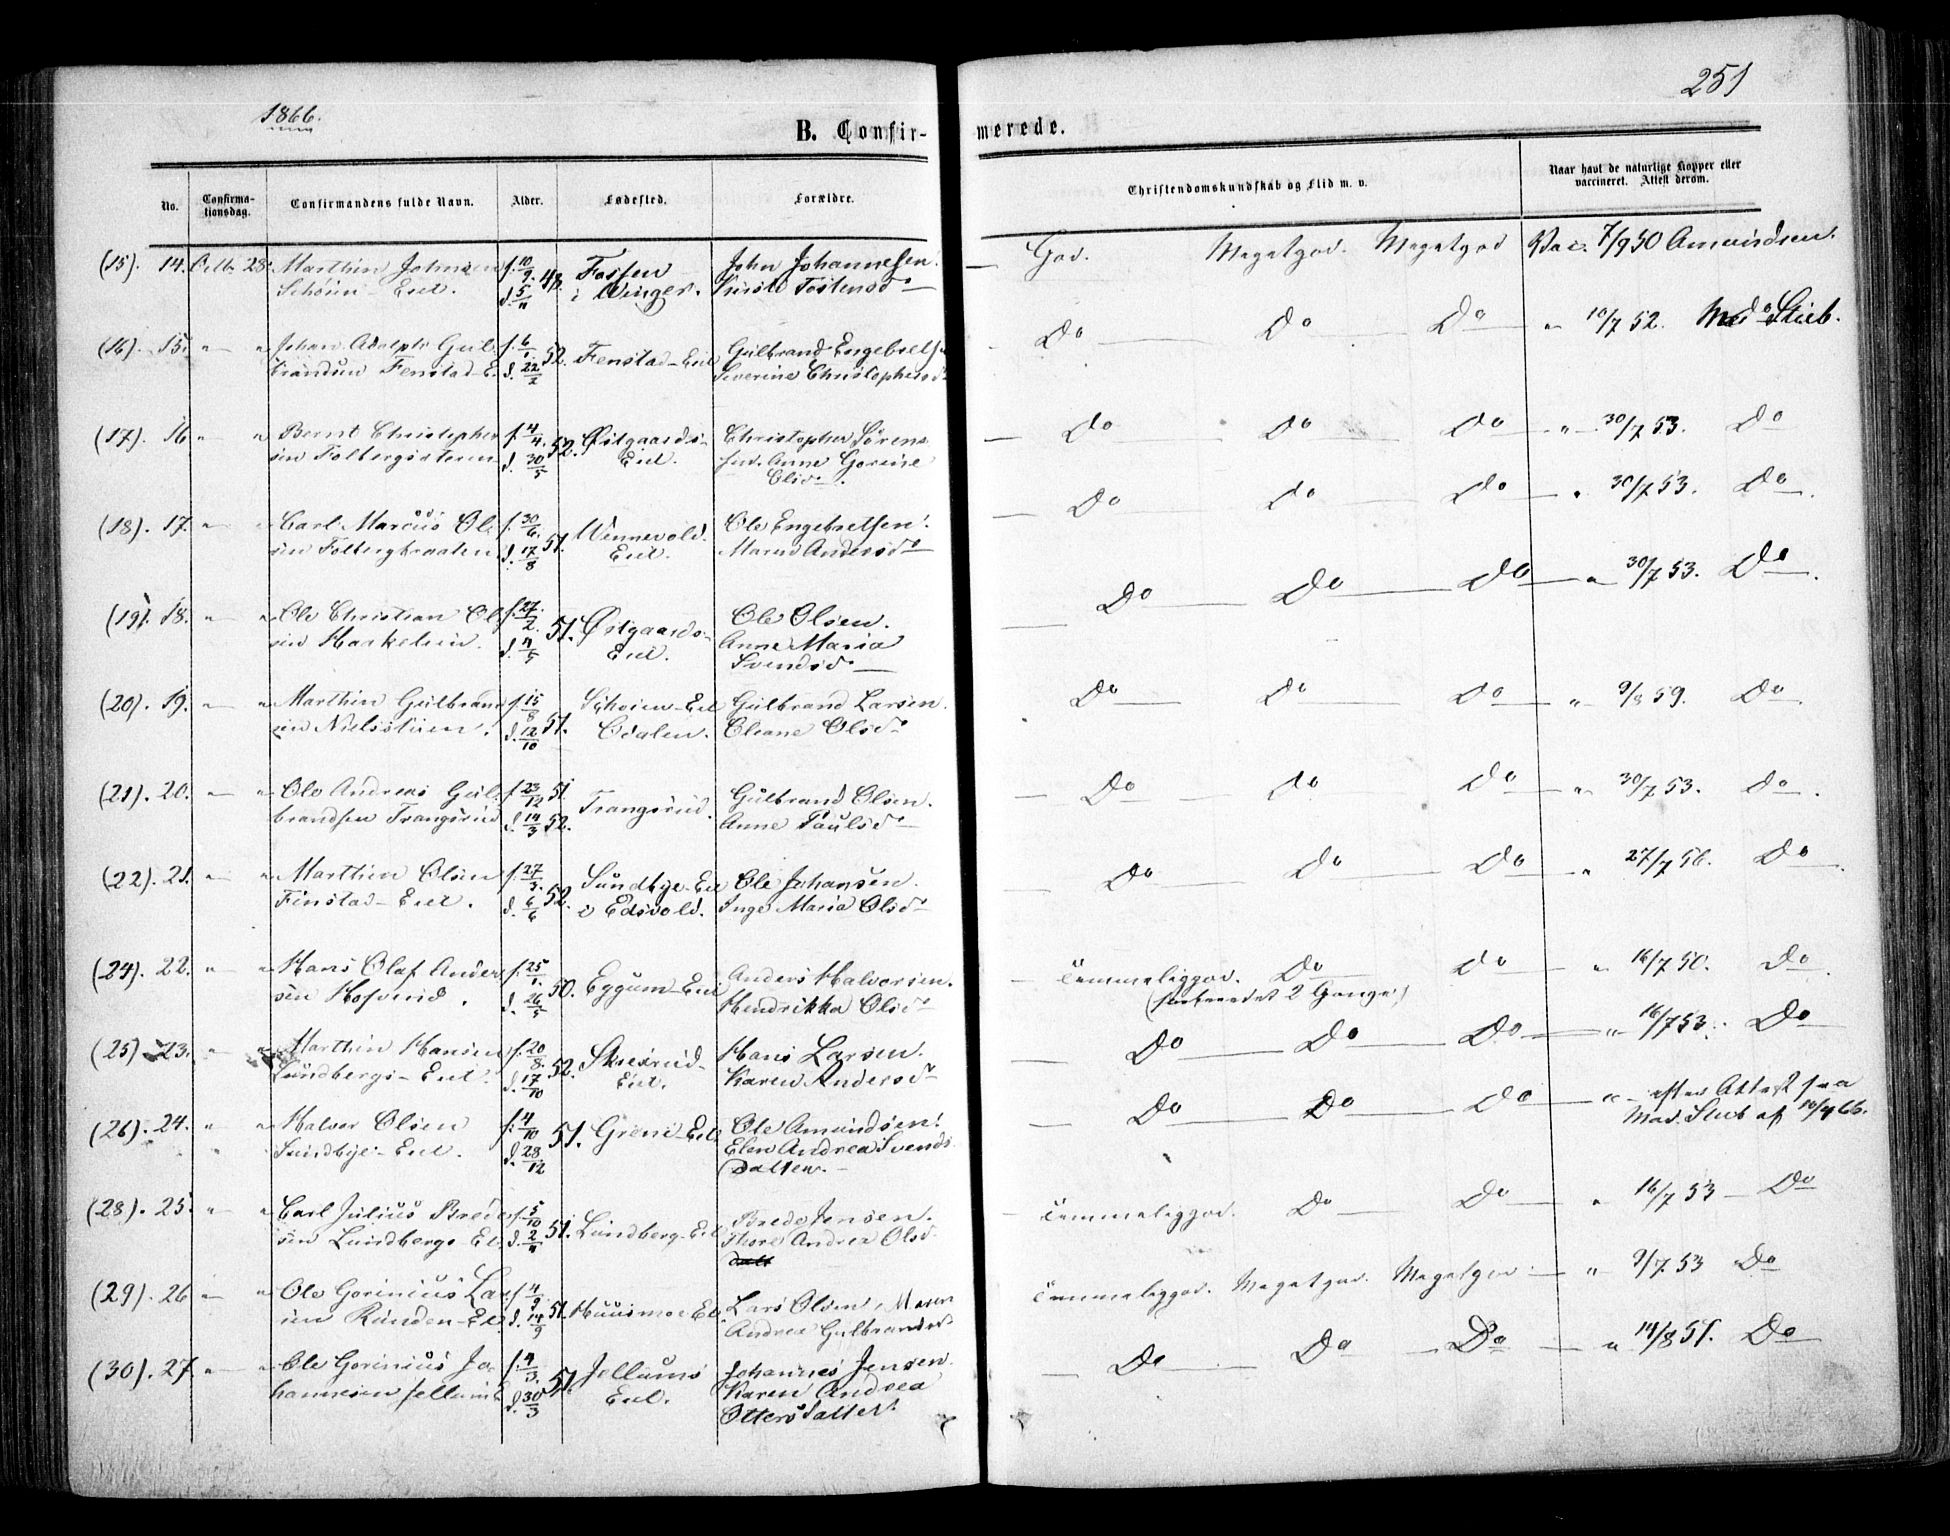 1866.
251
B. Confir- merede.
No. Confirma-tionsdag. Confirmandens fulde Navn. Alder. Fødested. Forældre. Christendomskundskab og Flid m. v. Naar havt de naturlige Kopper eller vaccineret. Attest derom.
(15). 14. Octb. 28. Marthin Johnsen f. 10/9. Fossen John Johannesen. God. Megetgod. Megetgod Vac. 7/9 50 Amundsen.
Schøien-Eiet. d. 5/11 i Winger. Kirsti Tostensd
(16). 15. " " Johan Adolph Gul- f. 6/1. 52. Fenstad-Eiet Gulbrand Engebretsen Do Do Do " 10/7 52. Mad Stub.
brandsen Fenstad-E. d. 22/2 Severine Christophersd
(17). 16 " " Bernt Christopher- f. 4/4. 52. Østgaards- Christopher Sørens- Do Do Do " 30/7 53. Do
sen Folbergsæteren d. 30/5 Eiet. sen. Anne Gorine
Olsd.
(18). 17. " " Carl Marcus Ol- f. 30/6. 51. Wennevold. Ole Engebretsen. Do Do Do " 30/7 53. Do
sen Folbergbraaten. d. 17/8 Eiet. Maren Andersd
(19). 18. " " Ole Christian Ol- f. 27/2. 51. Østgaards- Ole Olsen. Do Do Do " 30/7 53. Do
sen d. 4/5 Eiet. Anne Maria
Svendsd
(20). 19. " " Marthin Gulbrand- f. 15/8 51. Schøien-Eiet Gulbrand Larsen. Do Do Do " 9/8 59. Do
sen Nielsstuen. d. 12/10 Odalen. Oleane Olsd
(21). 20. " " Ole Andreas Gul- f. 23/12 51 Trangsrud. Gulbrand Olsen. Do Do Do " 30/7 53. Do
brandsen Trangsrud d. 14/3 52. Anne Paulsd
(22). 21. " " Marthin Olsen f. 27/3. 52. Sundbye-Eiet Ole Johansen. Do Do Do " 27/7 56. Do
Finstad-Eiet. d. 6/6 i Edsvold. Inge Maria Olsd
(24). 22. " " Hans Olaf Ander- f. 25/1. 50. Eggum-Eiet Anders Halvorsen. Temmeliggod. Do Do " 16/7 50. Do
sen Hofvind. d. 26/5 Hendrikka Olsd (forberedet 2 Gange.)
(25) 23. " " Marthin Hansen f. 20/8. 52. Skuesrud- Hans Larsen. Do Do Do " 16/7 53. Do
Lundbergs-Eiet. d. 17/10 Eiet. Karen Andersd
(26). 24. " " Halvor Olsen f. 4/10 51. Greni-Eiet Ole Amundsen. Do Do Do " efter Attest fra
Sundbye-Eiet. d. 28/12 Elen Andrea Svends- Mad. Stub af 10/4 66.
datter.
(28). 25. " " Carl Julius Brede- f. 5/10 51. Lundberg-Eiet Brede Jensen. Temmeliggod. Do Do " 16/7 53 Do
sen Lundbergs Ei. d. 2/11 Thore Andrea Olsd
(29). 26 " " Ole Gorinius Lar- f. 4/9. 51. Huusmoe-Ei. Lars Olsen, Maren Temmeliggod. Megetgod. Megetgod " 9/7 53 Do
sen Runden-Ei. d. 14/9 Andrea Gulbrandsd
(30). 27 " " Ole Gorinius Jo- f. 4/3. 51. Jellums Johannes Jensen. Do Do Do " 14/8 51. Do
hannesen Jellums d. 30/3 Eiet. Karen Andrea
Ottersdatter.